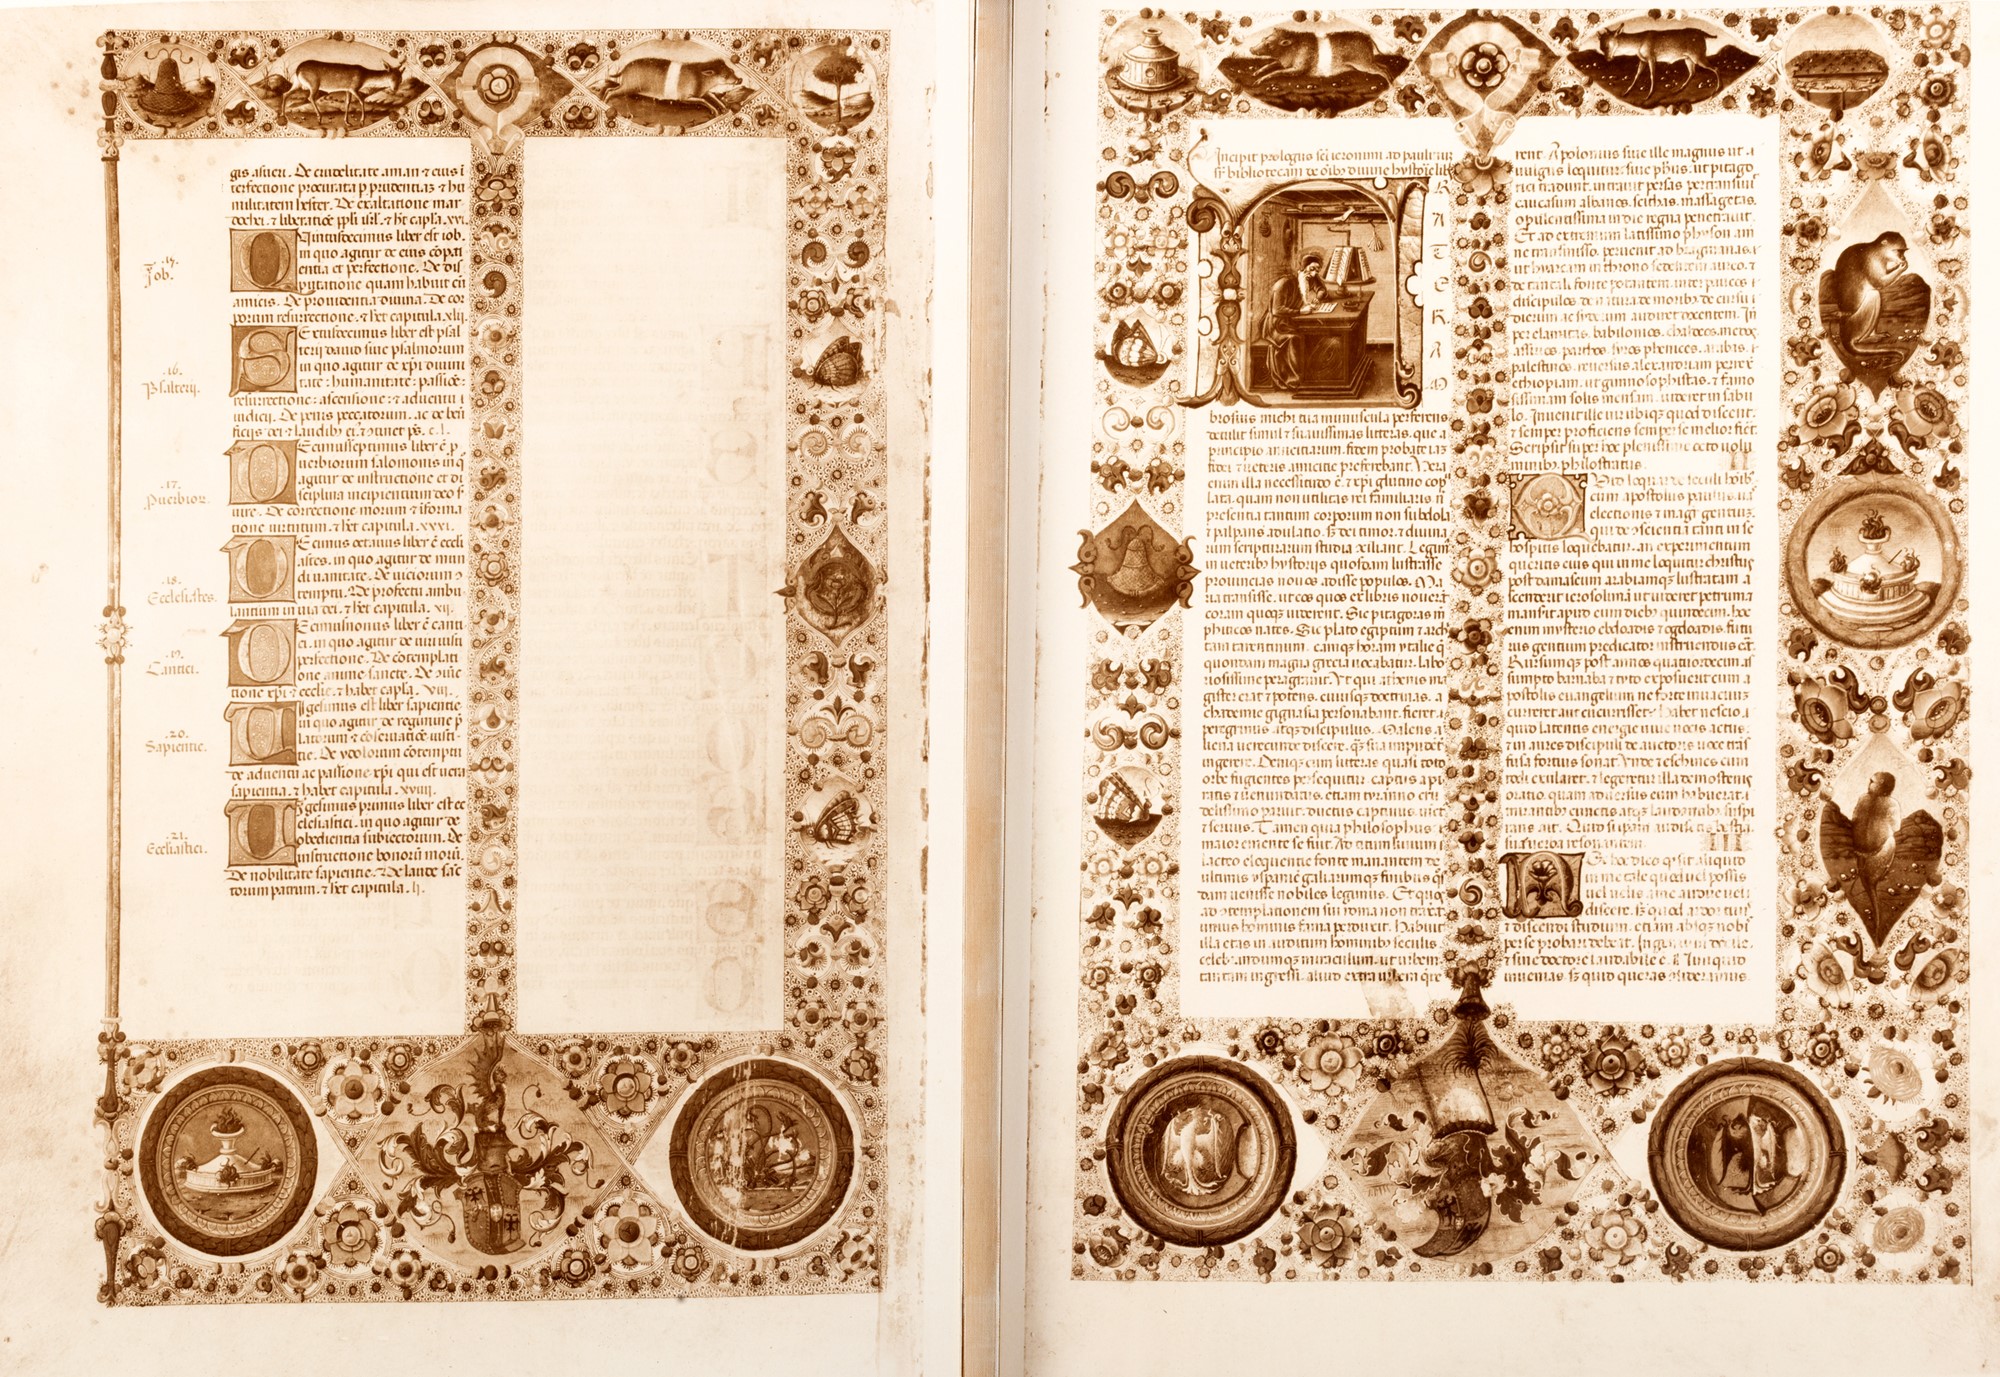 gis asueri. De crudelitate aman ⁊ eius ī
terfectione procurata p prudentiaʒ ⁊ hu
militatem hester. De exaltatione mar
dochei. ⁊ liberatiōe ppli isrl. ⁊ hʒ capla. xvi.
.15.
Iob.
Quintusdecimus liber est iob.
in quo agitur de eius cōpati
entia et perfectione. De dis
putatione quam habuit cū
amicis. De prouidentia diuina. De cor
porum resurrectione. ⁊ hʒ capitula. xlii.
.16.
Psalterij.
Sextusdecimus liber est psal
terij dauid siue psalmorum
in quo agitur de xpi diuini
tate : humanitate : passiōe :
resurrectione : ascensione : ⁊ aduentu
iudicij. De penis peccatorum. ac de bn̄
ficijs dei ⁊ laudibʒ ei. ⁊ ɔtinet ps. c.l.
.17.
Puerbior.
Decimusseptimus liber ē p
uerbiorum salomonis in q̄
agitur de instructione et di
sciplina incipientium deo s
uire. De correctione morum ⁊ īforma
tione uirtutum. ⁊ hʒ capitula. xxxi.
.18.
Ecclesiastes.
Decimus octauus liber ē eccli
astes. in quo agitur de mun
di uanitate. De uiciorum ɔ
temptu. De profectu ambu
lantium in uia dei. ⁊ hʒ capitula. xij.
.19.
Cantici.
Decimusnonus liber ē canti
ci. in quo agitur de uiri iusti
perfectione. De cōtemplati
one anime sancte. De ɔiūc
tione xpi ⁊ ecclie. ⁊ habet capla. viii.
.20.
Sapientie.
Uigesimus est liber sapientie
in quo agitur de regimine p
latorum ⁊ ɔseruatiōe iusti
tie. De ydolorum cōtemptu
de aduentu ac passione xpi qui est uera
sapientia. ⁊ habet capitula. xviiii.
.21.
Ecclesiastici.
Uigesimus primus liber est ec
clesiastici. in quo agitur de
obedientia subiectorum. De
instructione bonorū morū.
De nobilitate sapientie. ⁊ De laude sāc
torum patrum. ⁊ hʒ capitula. li.
Incipit prologus sci ieronimi ad paulinum
sr bibliotecam de oībʒ diuine hystorie libris
FRATER AM
brosius michi tua munuscula perferens
detulit simul ⁊ suauissimas litteras. que a
principio amicitiarum. fidem probate iaʒ
fidei ⁊ ueteris amicitie preferebant. Vera
enim illa necessitudo ē. ⁊ xpi glutino cop
lata. quam non utilitas rei familiaris n̄
presentia tantum corporum non subdola
⁊ palpans adulatio. sʒ dei timor. ⁊ diuina
rum scripturarum studia ɔciliant. Legim
in ueteribʒ hystorijs quosdam lustrasse
prouincias nouos adisse populos. Ma
ria transisse. ut eos quos ex libris nouerāt
coram quoqʒ uiderent. Sic pitagoras m̄
phiticos uates. Sic plato egiptum ⁊ arch
tam tarentinum. eamqʒ horam ytalie q̄
quondam magna grecia uocabatur. labo
riosissime peragrauit. Vt qui athenis ma
gister erat ⁊ potens. cuiusqʒ doctrinas. a
chademie gignasia personabant. fieret.
peregrinus atqʒ discipulus. Malens a
liena uerecunde discere. qʒ sua impudent
ingerere. Deniqʒ cum litteras quasi toto
orbe fugientes persequitur. captus a pi
ratis ⁊ uenundatus. etiam tyranno cru
delissimo paruit. ductus captiuus. uict
⁊ seruus. Tamen quia philosophus.
maior emente se fuit. Ad titum liuium
lacteo eloquentie fonte manantem de
ultimis yspanie galiarumqʒ finibus q̄
dam uenisse nobiles legimus. Et quos
ad ɔtemplationem sui roma non traxerat
unius hominis fama perduxit. Habuit
illa etas in auditum hominibʒ seculis.
celebrandumqʒ miraculum. ut urbem
tantam ingressi. aliud extra urbem q̄re
rent. Apolonius siue ille magnus ut
uulgus loquitur. siue phus. ut pitago
rici tradunt. intrauit persas pertransiuit
caucasum albanos. scithas. massagetas.
opulentissima indie regna penetrauit.
Et ad extremum latissimo physon am
ne transmisso. peruenit ad bragmanas.
ut hyarcam in throno sedentem aureo. ⁊
de tancali fonte potantem. inter paucos
discipulos de natura de moribʒ de cursu
dierum ac syderum audiret docentem. In
per elamitas. babilonios. chaldeos. medos
assirios. parthos. syros. phenices. arabis.
palestinos. reuersus alexandriam perrex
ethiopiam. ut gimnosophistas. ⁊ famo
sissimam solis mensam. uideret in sabu
lo. Inuenit ille uir ubiqʒ quod disceret.
⁊ semper proficiens semper se melior fieret.
Scripsit super hoc plenissime octo uolu
minibʒ philostratus.
II
Quid loquar de seculi hoībʒ
cum apostolus paulus ua
electionis ⁊ magr gentium
qui de ɔscientia tanti in se
hospitis loquebatur. an experimentum
queritis eius qui in me loquitur christus
post damascum arabiamqʒ lustratam a
scenderit ierosolimā ut uideret petrum ⁊
manserit apud eum diebʒ quindecim. hoc
enim mysterio ebdoadis ⁊ ogdoadis. futu
rus gentium predicator instruendus erat.
Rursumqʒ post annos quatuordecim as
sumpto barnaba ⁊ tyto exposuerit cum a
postolis euangelium ne forte in uacuum
curreret aut cucurrisset. Habet nescio
quid latentis energie uiue uocis actus.
⁊ in aures discipuli de auctoris uoce tras
fusa fortius sonat. Vnde ⁊ eschines cum
rodi exularet. ⁊ legeretur illa demostenis
oratio. quam aduersus eum habuerat.
mirantibʒ cunctis atqʒ laudantibʒ suspi
rans ait. Quid si ipam audissetis bestia.
sua uerba resonantem.
III
Nec hoc dico qʒ sit aliquid
in me tale quod uel possis
uel uelis a me audire uel
discere. sʒ quod ardor tuus
⁊ discendi studium. etiam absqʒ nobis
per se probari debeat. Ingenium docile.
⁊ sine doctore laudabile ē. Non quid
inuenias. sʒ quid queras ɔsideramus.